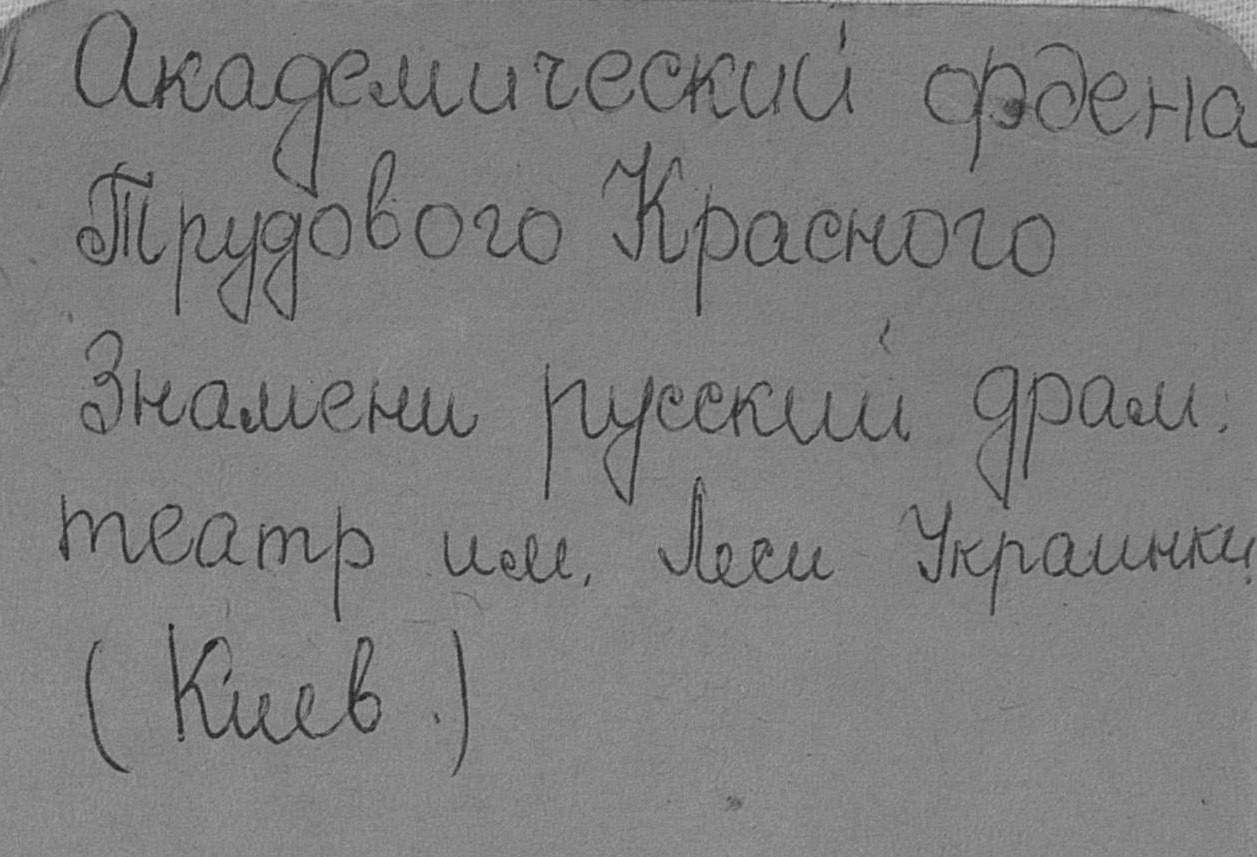 Академический ордена
Трудового Красного
Знамени русский драм.
театр им. Леси Украинки
(Киев.)